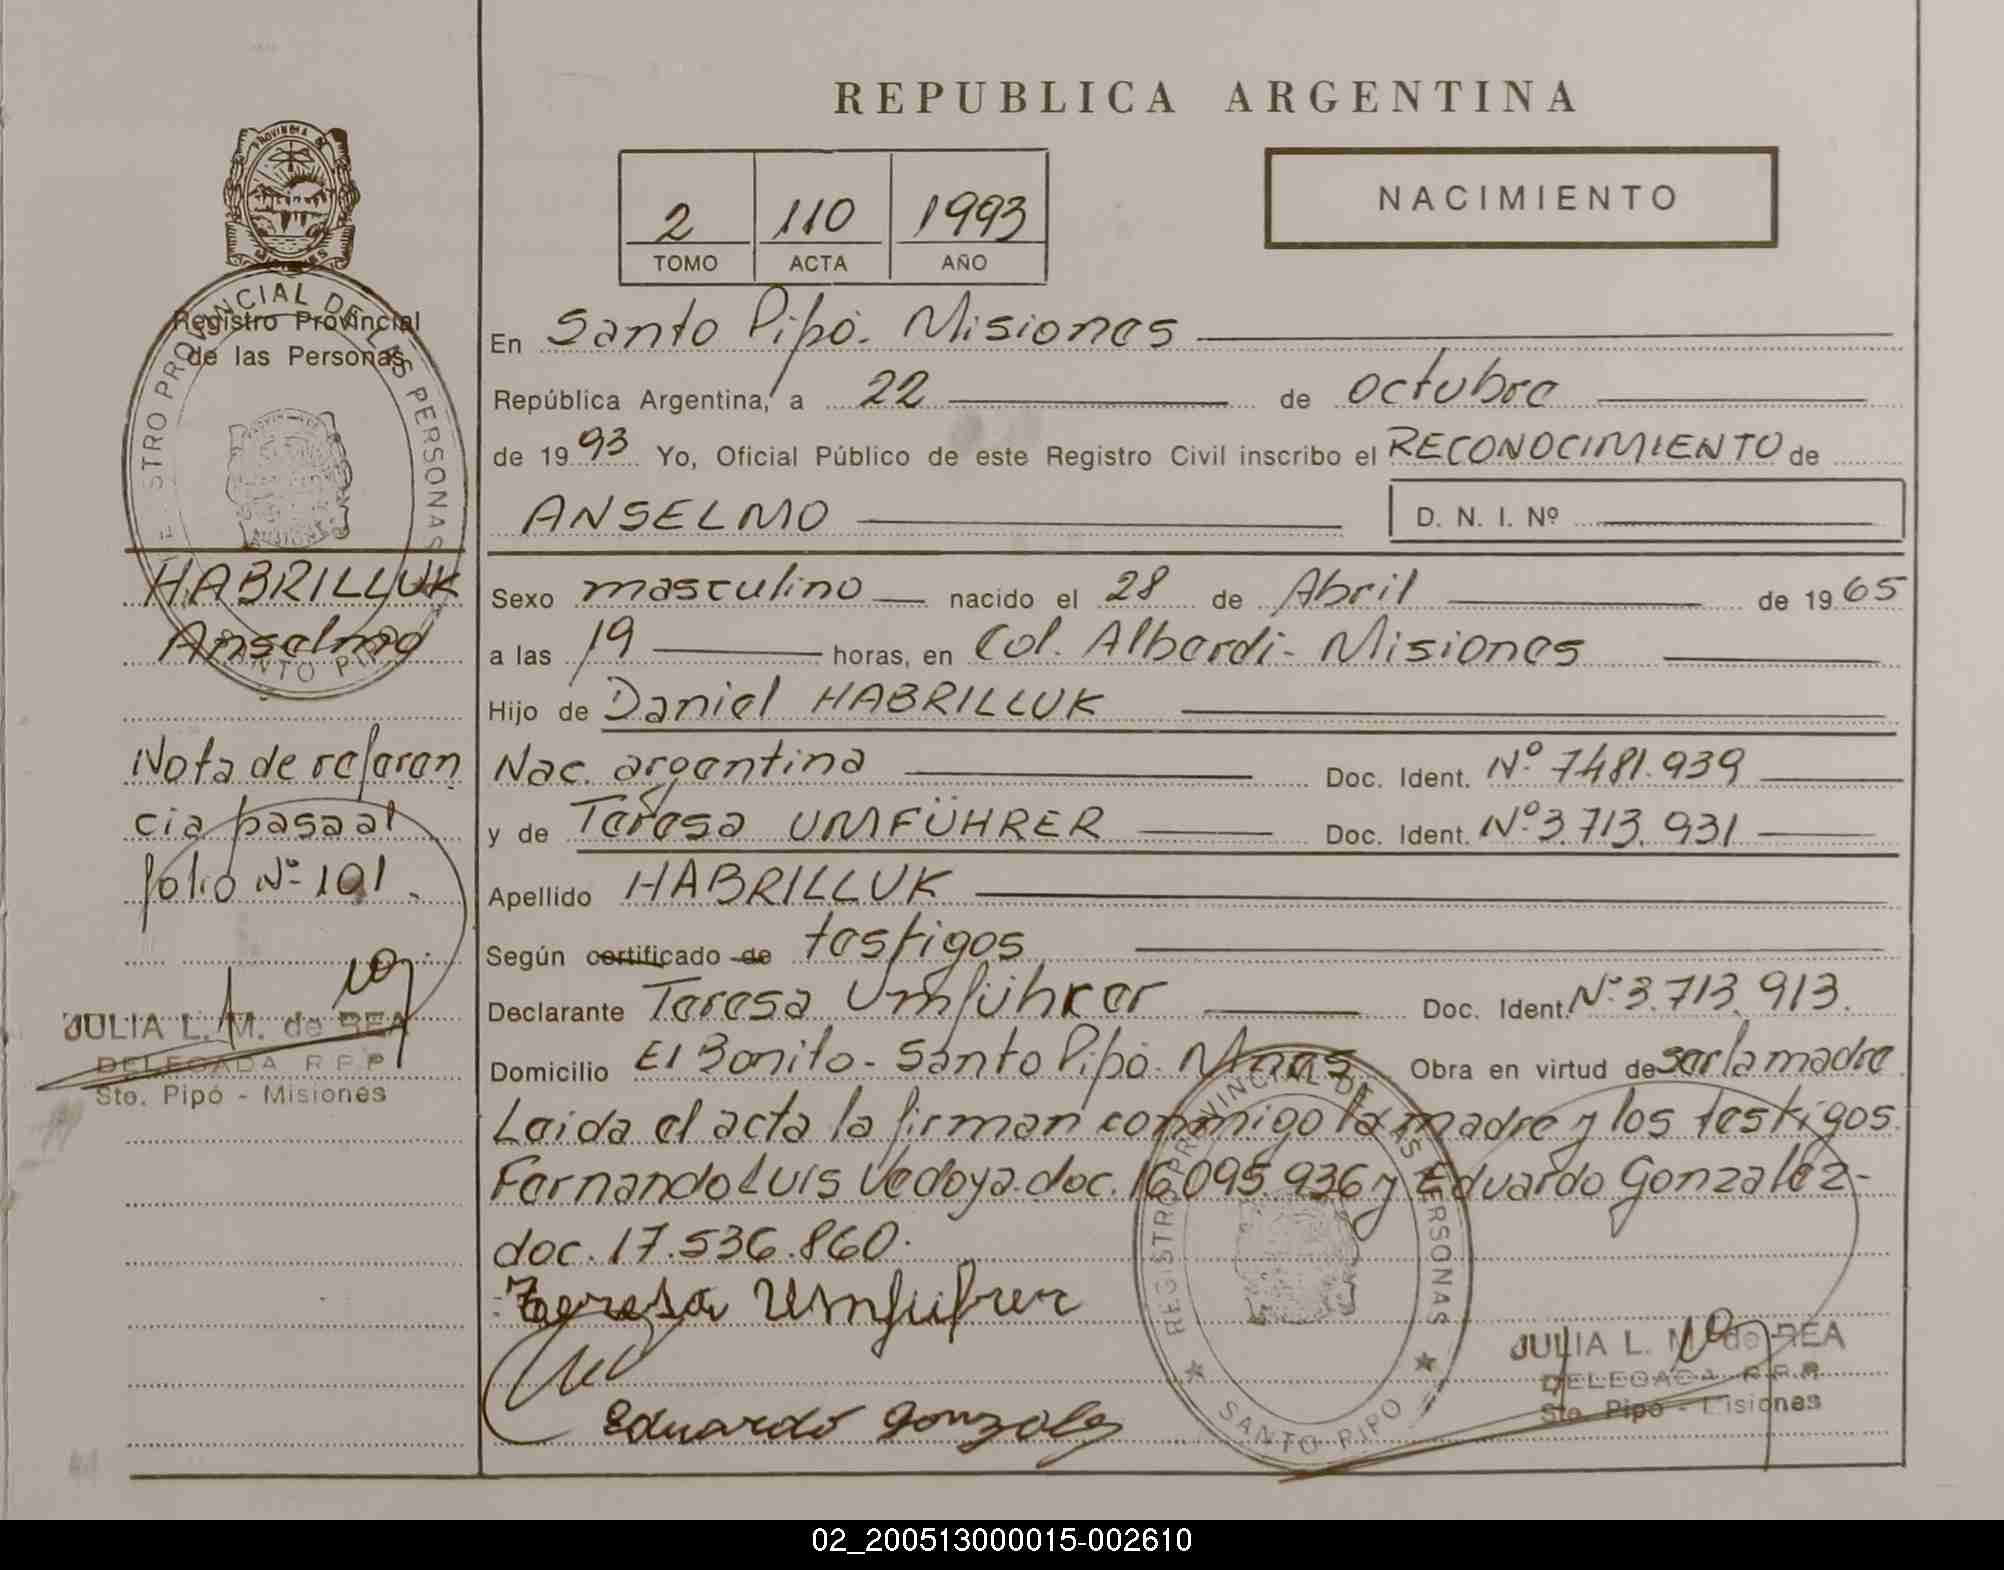 REPUBLICA ARGENTINA
NACIMIENTO
2 110 1993
TOMO ACTA AÑO
PROVINCIA DE
MISIONES
Registro Provincial
de las Personas
REGISTRO PROVINCIAL DE LAS PERSONAS
SANTO PIPO
HABRILLUK
Anselmo
Nota de referen
cia pasa al
folio Nº 101.
JULIA L. M. de REA
DELEGADA R.P.P
Sto. Pipó - Misiones
En Santo Pipó. Misiones
República Argentina, a 22 de octubre
de 1993 Yo, Oficial Público de este Registro Civil inscribo el RECONOCIMIENTO de
ANSELMO D. N. I. Nº
Sexo masculino nacido el 28 de Abril de 1965
a las 19 horas, en Col. Alberdi - Misiones
Hijo de Daniel HABRILLUK
Nac. argentina Doc. Ident. Nº 7481.939
y de Teresa UMFÜHRER Doc. Ident. Nº 3.713.931
Apellido HABRILLUK
Según certificado de testigos
Declarante Teresa Umführer Doc. Ident. Nº 3.713.913.
Domicilio El Bonito - Santo Pipó - Mnes Obra en virtud de ser la madre
Leida el acta la firman conmigo la madre y los testigos
Fernando Luis Vedoya. doc. 16.095.936 y Eduardo Gonzalez-
doc. 17.536.860.
Teresa Umfuhrer
Eduardo Gonzalez
REGISTRO PROVINCIAL DE LAS PERSONAS
SANTO PIPO
JULIA L. M. de REA
DELEGADA R.P.P.
Sto. Pipó - Misiones
02_200513000015-002610